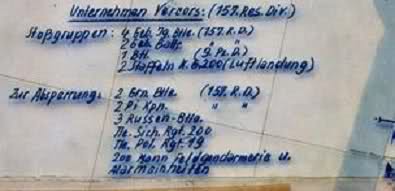 Unternehmen Vercors: (157. Res. Div.)
Stoßgruppen: 4 Geb. Jg. Btle. (157. R.D.)
2 Geb. Battr. "
1 Btl. (9. Pz. D.)
2 Staffeln K.G. 200 (Luftlandung)
Zur Absperrung: 2 Grn. Btle. (157. R.D.)
2 Pi Kpn. " "
3 Russen-Btle.
Tle. Sich. Rgt. 200
Tle. Pol. Rgt. 19
200 Mann Feldgendarmerie u.
Alarmeinheiten